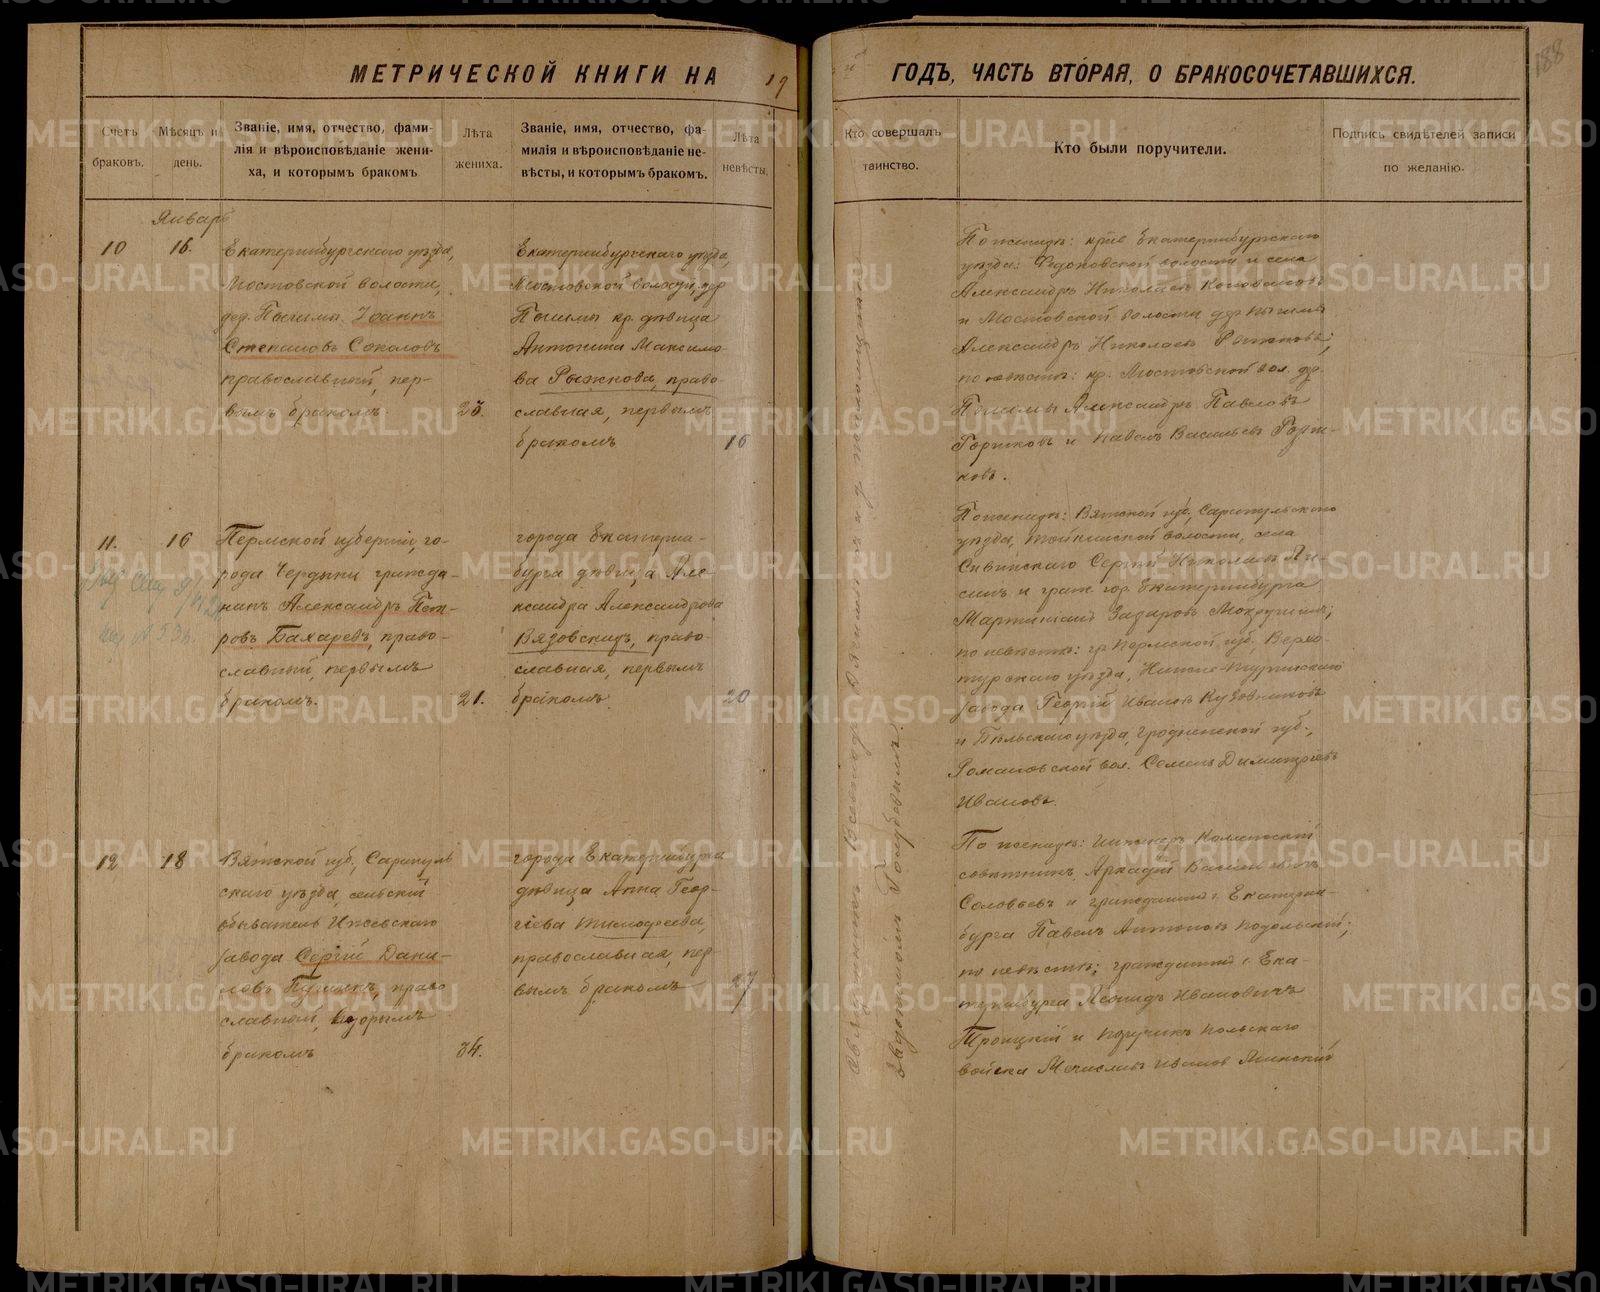 МЕТРИЧЕСКОЙ КНИГИ НА 19
ГОДЪ, ЧАСТЬ ВТОРАЯ, О БРАКОСОЧЕТАВШИХСЯ.
188
Счетъ браковъ.
Мѣсяцъ и день.
Званіе, имя, отчество, фами-
лія и вѣроисповѣданіе жени-
ха, и которымъ бракомъ
Лѣта
жениха.
Званіе, имя, отчество, фа-
милія и вѣроисповѣданіе не-
вѣсты, и которымъ бракомъ.
Лѣта
невѣсты.
Кто совершалъ
таинство.
Кто были поручители.
Подпись свидѣтелей записи
по желанію.
Январь
10
16.
Екатеринбургскаго уѣзда,
Мостовской волости,
дер. Пышмы Іоаннъ
Степановъ Соколовъ
православный, пер-
вымъ бракомъ.
23.
Екатеринбургскаго уѣзда,
Мостовской волости, дер
Пышмы кр. дѣвица
Антонина Максимо-
ва Рыжкова, право-
славная, первымъ
бракомъ
16
По женихѣ: кр-не Екатеринбургскаго
уѣзда: волости и села
Александръ Николаевъ Коноваловъ
и Мостовской волости дер. Пышмы
Александръ Николаевъ Рыжковъ;
по невѣстѣ: кр. Мостовской вол. дер.
Пышмы Александръ Павловъ
и Павелъ Васильевъ
ковъ.
11.
16
Пермской губерніи, го-
рода Чердыни гражда-
нинъ Александръ Пет-
ровъ Бахаревъ, право-
славный, первымъ
бракомъ.
21.
города Екатерин-
бурга дѣвица Але-
ксандра Александрова
Вязовскихъ, право-
славная, первымъ
бракомъ.
20
По женихѣ: Вятской губ., Сарапульскаго
уѣзда, волости, села
Сергѣй Николаевъ
и гражд. гор. Екатеринбурга
по невѣстѣ: гр. Пермской губ., Верхо-
турскаго уѣзда, Нижне-Туринскаго
завода Георгій Ивановъ Кузовниковъ
и Бѣльскаго уѣзда, Гродненской губ.,
Романовской вол. Семенъ Димитріевъ
Ивановъ.
12
18
Вятской губ., Сарапуль
скаго уѣзда, сельскій
обыватель Ижевскаго
завода Сергій Дани-
ловъ право
славный, вторымъ
бракомъ
34.
города Екатеринбурга
дѣвица Анна Геор-
гіева Тимофеева,
православная, пер-
вымъ бракомъ
27
По женихѣ: Инженеръ Коллежскій
совѣтникъ Аркадій Васильевичъ
Соловьевъ и гражданинъ г. Екатерин-
бурга Павелъ Антоновъ Подольскій;
по невѣстѣ: гражданинъ г. Ека-
теринбурга Леонидъ Ивановичъ
Троицкій и поручикъ польскаго
войска Мечиславъ Ивановъ
METRIKI.GASO-URAL.RU